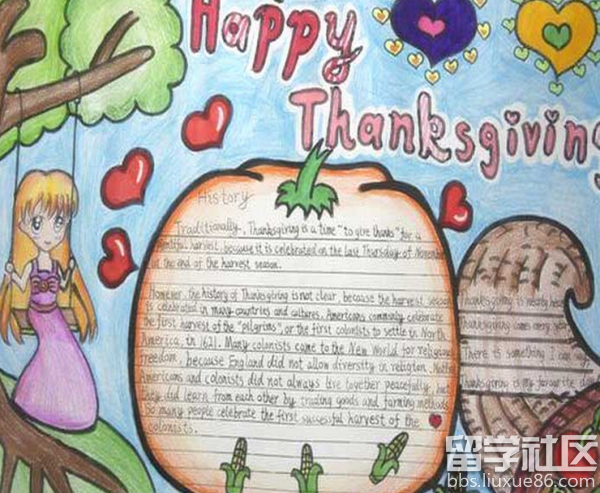 Happy
Thanksgiving
History
Traditionally, Thanksgiving is a time "to give thanks" for a
bountiful harvest, because it is celebrated on the last Thursday of November
at the end of the harvest season.
However, the history of Thanksgiving is not clear, because the harvest season
is celebrated in many countries and cultures. Americans commonly celebrate
the first harvest of the "pilgrims", or the first colonists to settle in North
America, in 1621. Many colonists came to the New World for religious
freedom, because England did not allow diversity in religion. Native
Americans and colonists did not always live together peacefully, but
they did learn from each other by trading goods and farming methods.
So many people celebrate the first successful harvest of the
colonists.
Thanksgiving is nearly here
Thanksgiving comes every year
There is something I can say
Thanksgiving is my favourite day
留学社区
bbs.liuxue86.com